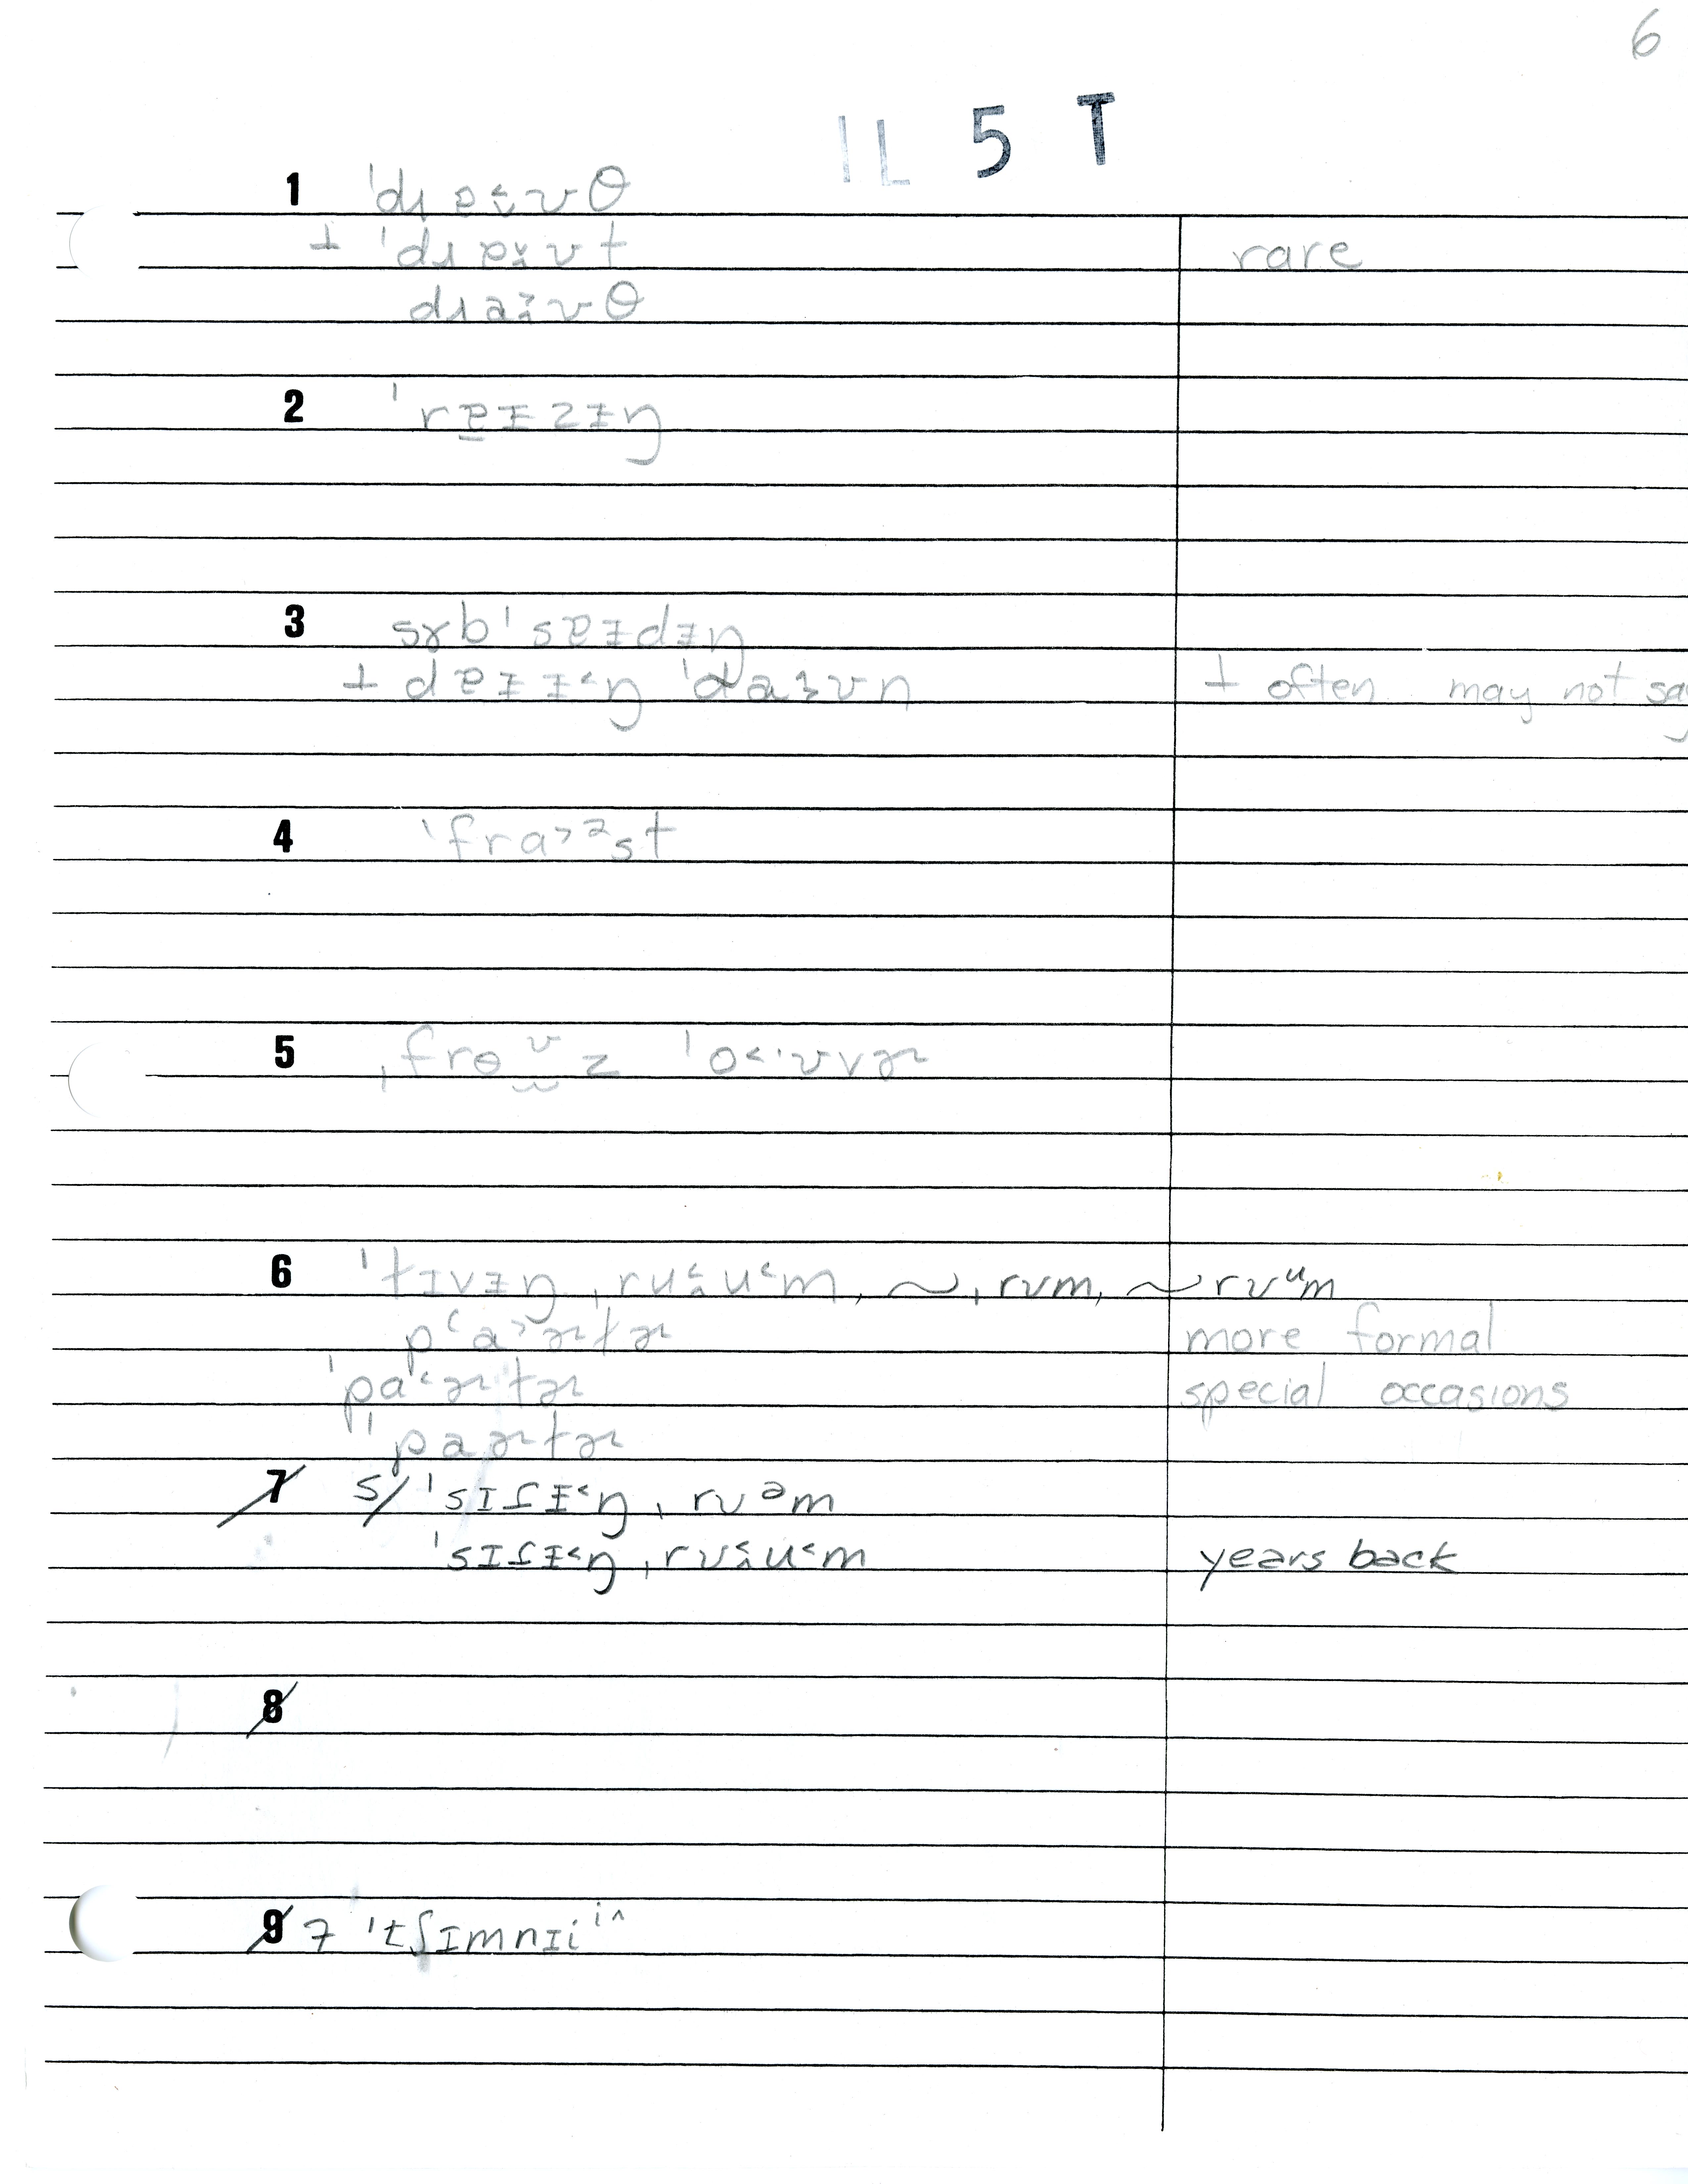 6
IL 5 T
1 ˈdɹɐ˰ʊθ
⊥ ˈdɹɐ˰ʊt rare
dɹa˰ʊθ
2 ˈrɐ̠ɪzɪŋ
3 sɤbˈsɐɪdɪŋ
⊥ dɐɪɪ˂ŋ ˈdaʊn ⊥ often may not say
4 ˈfra˃ᶻst
5 ˌfroᶷz ˈo˂·ʊvɚ
6 ˈlɪvɪŋ ˌru˂u˂m, ~ ˌrʊm, ~ rʊᵘm
p‘a˃ɚtɚ more formal
ˈpa˂ɚtɚ special occasions
" paɚtɚ
7 s/ ˈsɪʃɪ˂ŋ ˌrʊᵊm
ˈsɪʃɪ˂ŋ ˌrʊ˂u˂m years back
8
9 7 ˈtʃɪmnɪiⁱ^